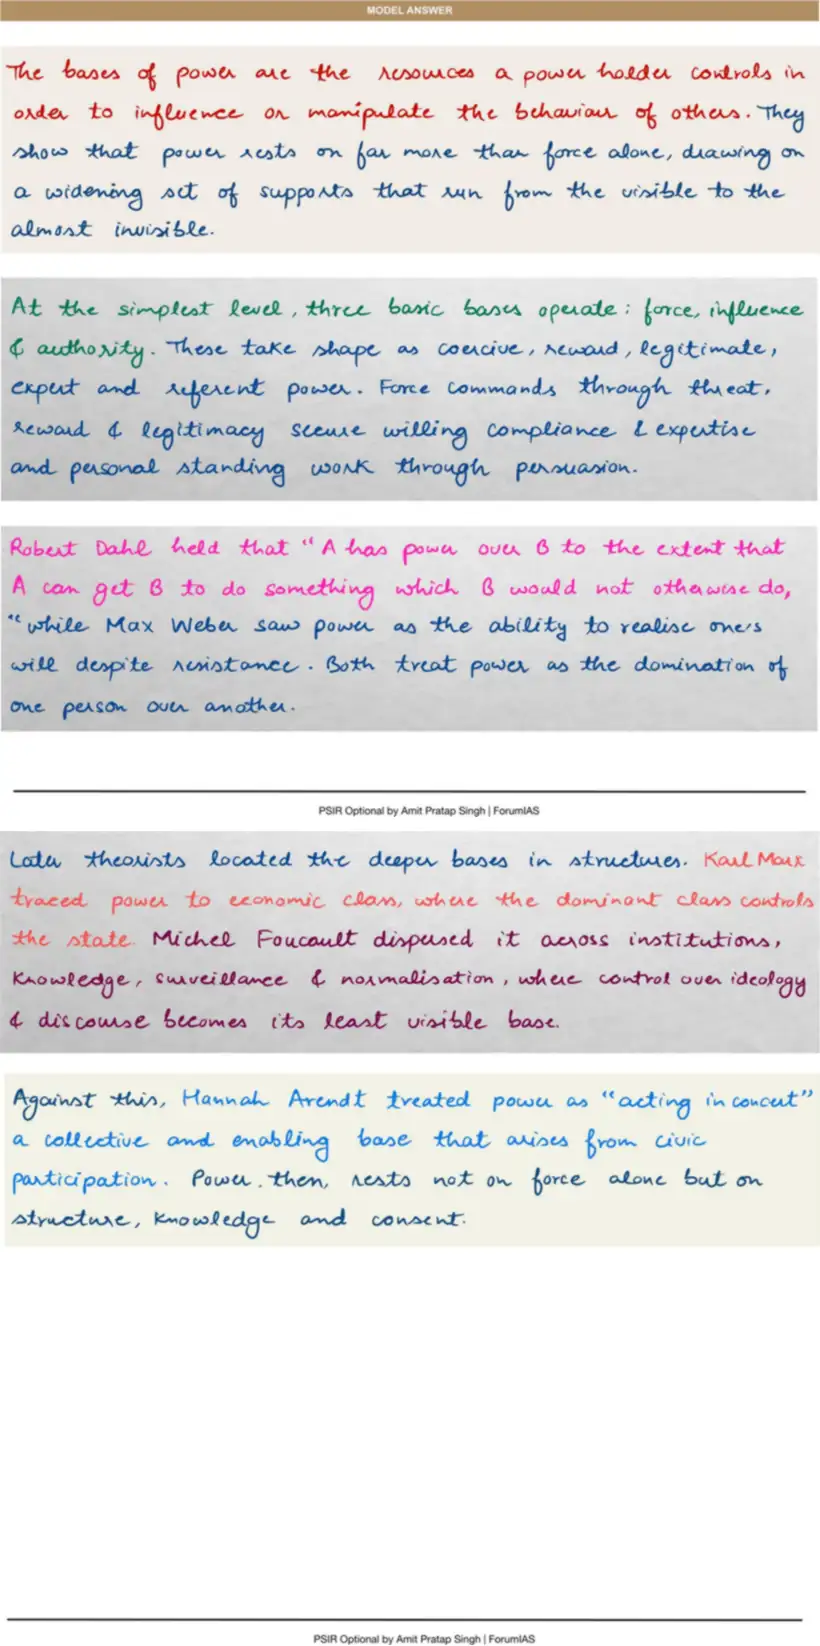 MODEL ANSWER
The bases of power are the resources a power holder controls in
order to influence or manipulate the behaviour of others. They
show that power rests on far more than force alone, drawing on
a widening set of supports that run from the visible to the
almost invisible.
At the simplest level, three basic bases operate: force, influence
& authority. These take shape as coercive, reward, legitimate,
expert and referent power. Force commands through threat,
reward & legitimacy secure willing compliance & expertise
and personal standing work through persuasion.
Robert Dahl held that "A has power over B to the extent that
A can get B to do something which B would not otherwise do,
"while Max Weber saw power as the ability to realise one's
will despite resistance. Both treat power as the domination of
one person over another.
PSIR Optional by Amit Pratap Singh | ForumIAS
Later theorists located the deeper bases in structures. Karl Marx
traced power to economic class, where the dominant class controls
the state. Michel Foucault dispersed it across institutions,
knowledge, surveillance & normalisation, where control over ideology
& discourse becomes its least visible base.
Against this, Hannah Arendt treated power as "acting in concert"
a collective and enabling base that arises from civic
participation. Power, then, rests not on force alone but on
structure, knowledge and consent.
PSIR Optional by Amit Pratap Singh | ForumIAS